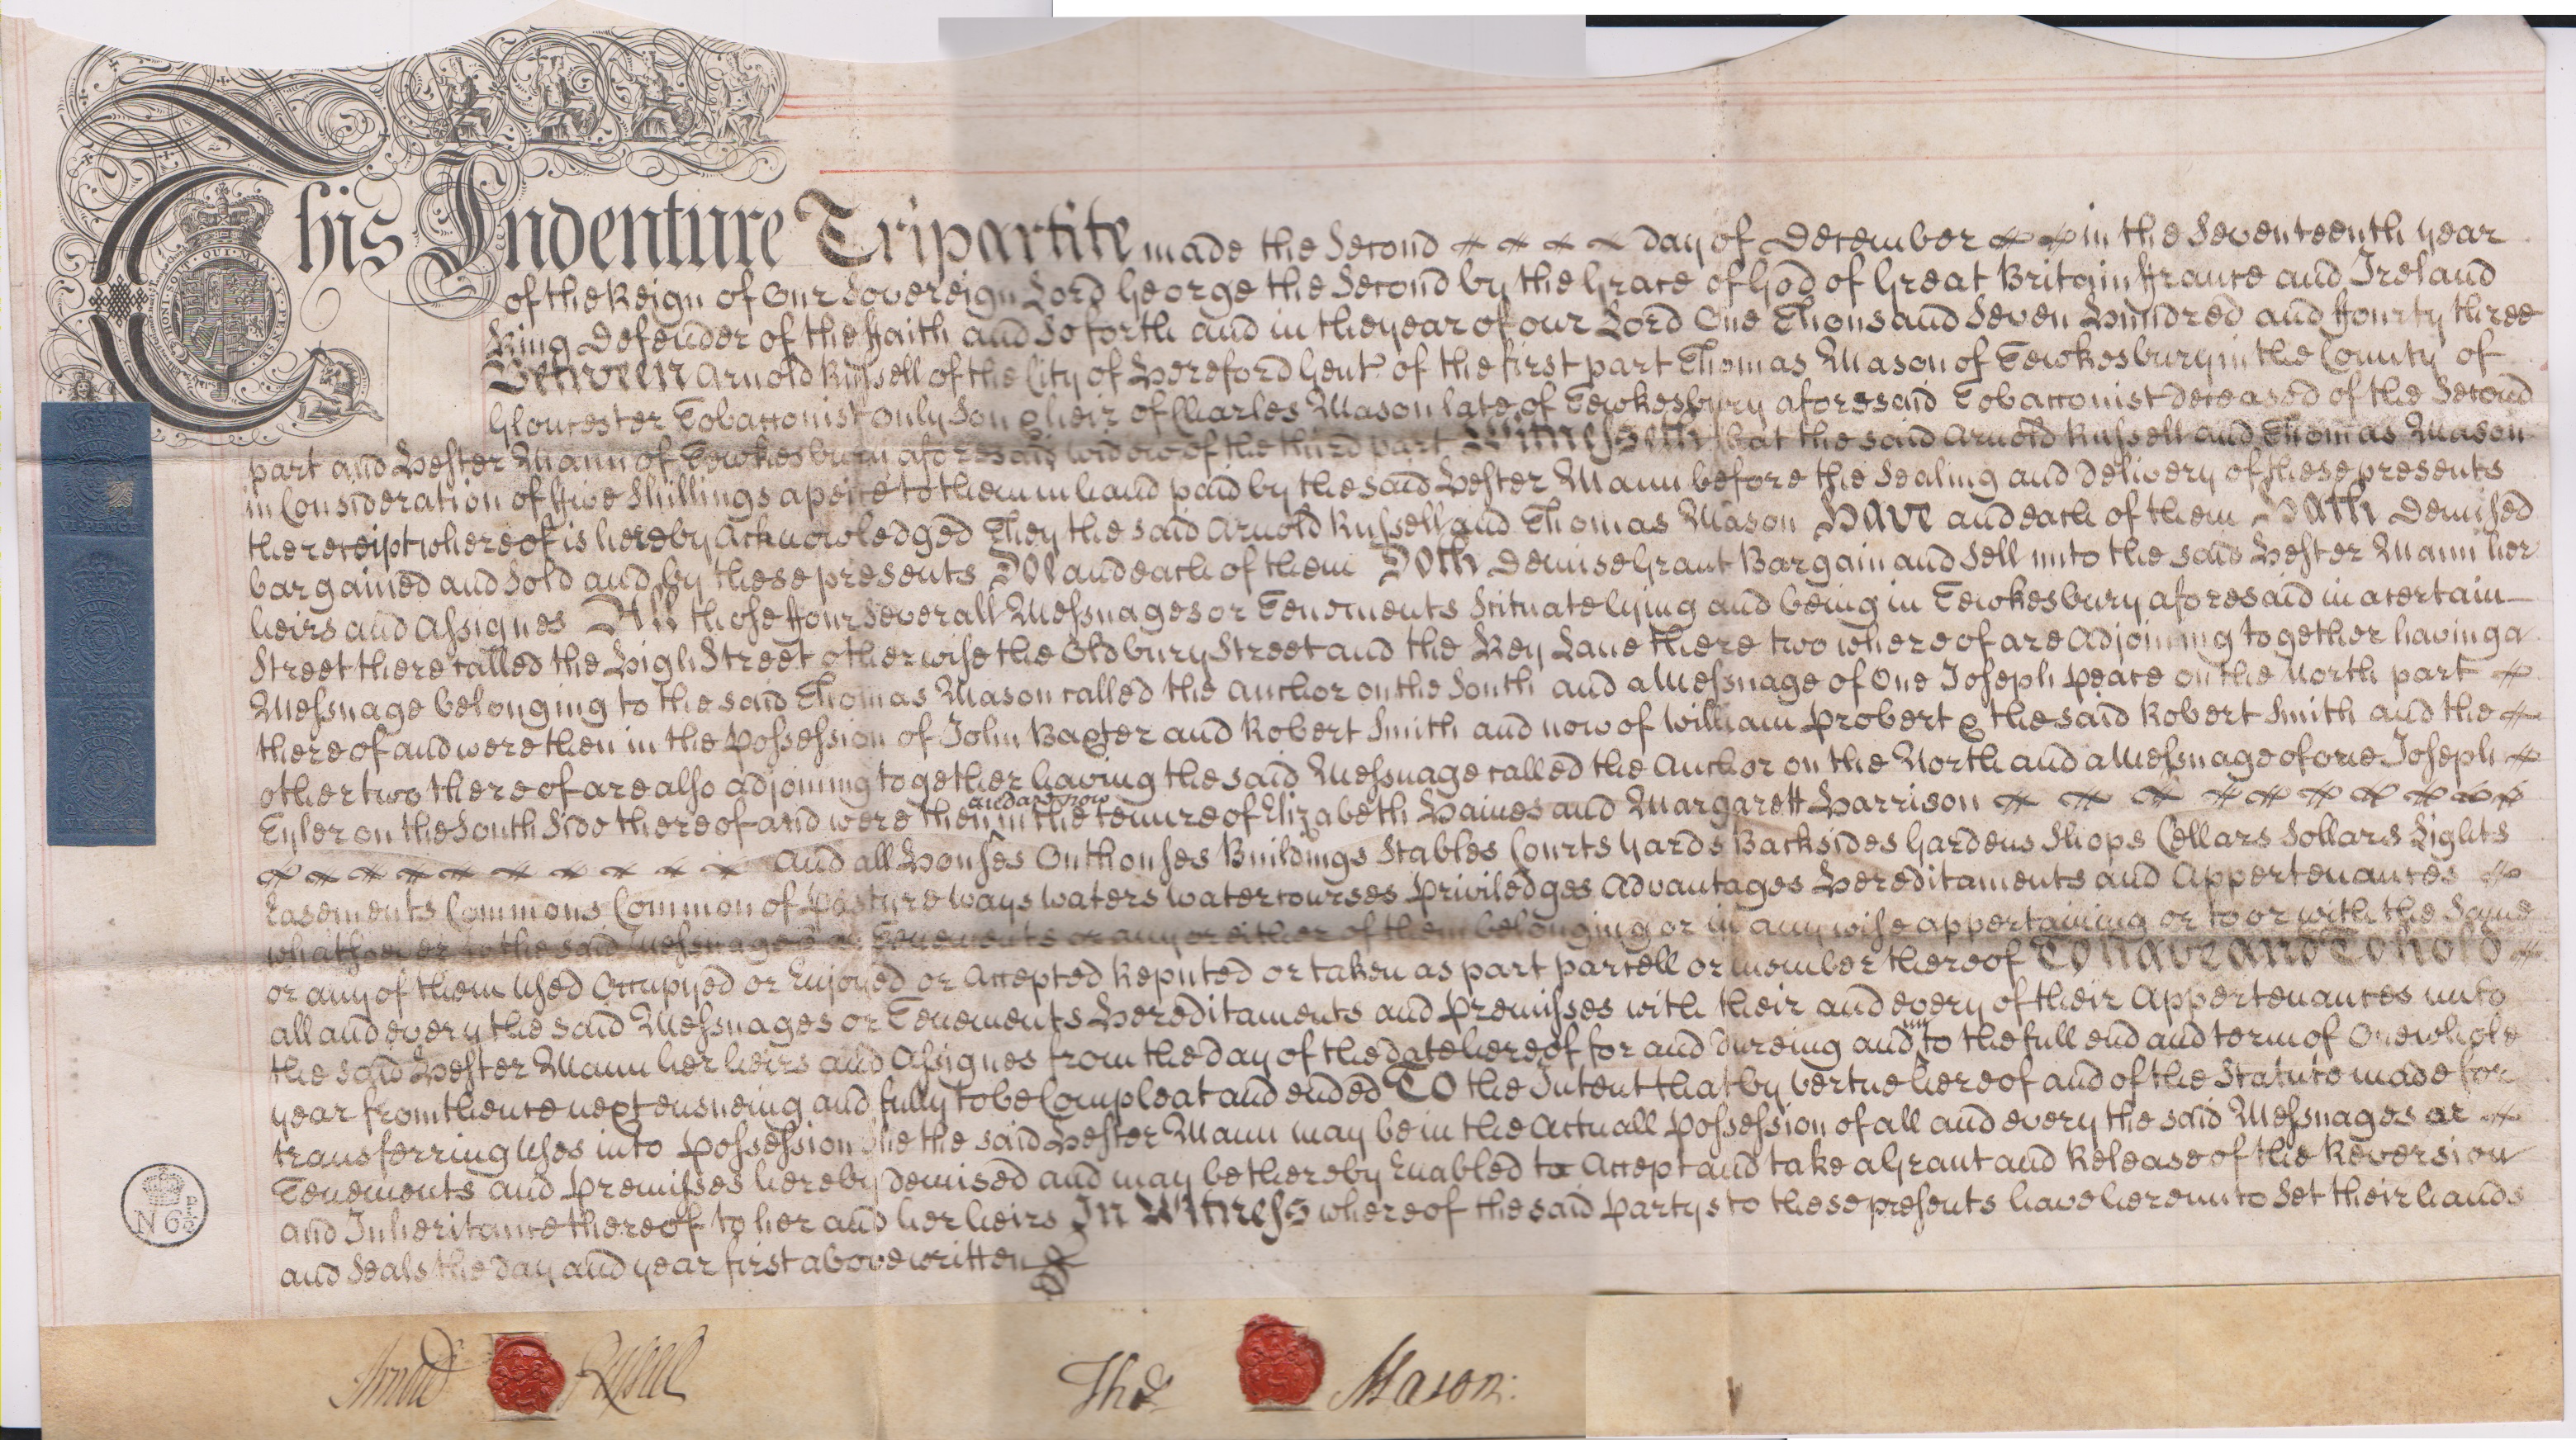 This Indenture Tripartite made the Second day of December in the Seventeenth year
of the Reign of Our Sovereign Lord George the Second by the Grace of God of Great Britain ffrance and Ireland
King Defender of the ffaith and So forth and in the year of our Lord One Thousand Seven Hundred and ffourty three
Between Arnold Russell of the City of Hereford Gent of the first part Thomas Mason of Tewkesbury in the County of
Gloucester Tobacconist only Son & heir of Charles Mason late of Tewkesbury aforesaid Tobacconist deceased of the Second
part and Hester Mann of Tewkesbury aforesaid widow of the third part Witnesseth that the said Arnold Russell and Thomas Mason
in Consideration of ffive Shillings apeice to them in hand paid by the said Hester Mann before the Sealing and delivery of these presents
the receipt whereof is hereby Acknowledged They the said Arnold Russell and Thomas Mason Have and each of them Hath Demised
bargained and Sold and by these presents Doe and each of them Doth Demise Grant Bargain and Sell unto the said Hester Mann her
heirs and Assignes All those ffour Severall Messuages or Tenements Scituate lying and being in Tewkesbury aforesaid in a certain
Street there called the High Street otherwise the Oldbury Street and the Key Lane there two whereof are Adjoining together having a
Messuage belonging to the said Thomas Mason called the Anchor on the South and a Messuage of One Joseph Peace on the North part
thereof and were then in the Possession of John Baxter and Robert Smith and now of William Probert & the said Robert Smith and the
other two thereof are also adjoining together having the said Messuage called the Anchor on the North and a Messuage of one Joseph
and are now
Tyler on the South Side thereof and were then in the tenure of Elizabeth Haines and Margarett Harrison
And all Houses Outhouses Buildings Stables Courts Yards Backsides Gardens Shops Cellars Sollars Lights
Easements Commons Common of Pasture Ways Waters Watercourses Priviledges Advantages Hereditaments and Appertenances
whatsoever to the said Messuages or Tenements or any or either of them belonging or in any wise appertaining or to or with the Same
or any of them Used Occupyed or Enjoyed or Accepted Reputed or taken as part parcell or member thereof To have and To hold
all and every the said Messuages or Tenements Hereditaments and Premisses with their and every of their Appertenances unto
the said Hester Mann her heirs and Assignes from the day of the date hereof for and Dureing and unto the full end and term of One whole
year from thence next ensueing and fully to be Compleat and ended To the Intent that by Vertue hereof and of the Statute made for
transferring Uses into Possession She the said Hester Mann may be in the Actuall Possession of all and every the said Messuages or
Tenements and Premisses hereby Demised and may be thereby Enabled to Accept and take a Grant and Release of the Reversion
and Inheritance thereof to her and her heirs In Witness whereof the said Partys to these presents have hereunto Set their hands
and Seals the day and year first above written
Arnold Russell
Thos Mason
VI·PENCE
VI·PENCE
VI·PENCE
HONI·SOIT·QUI·MAL·Y·PENSE